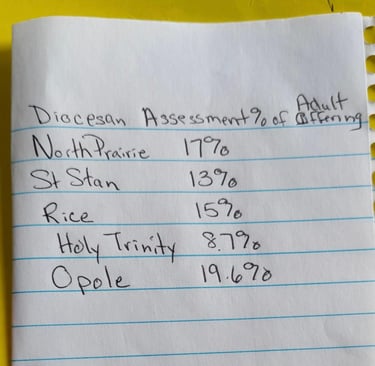 Diocesan Assessment % of Adult Offering
North Prairie 17%
St Stan 13%
Rice 15%
Holy Trinity 8.7%
Opole 19.6%